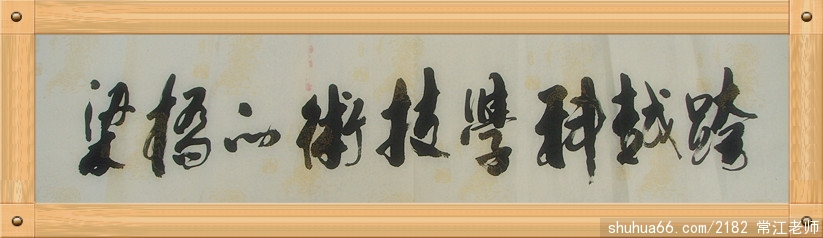 跨越科學技術的橋梁
shuhua66.com/2182 常江老师